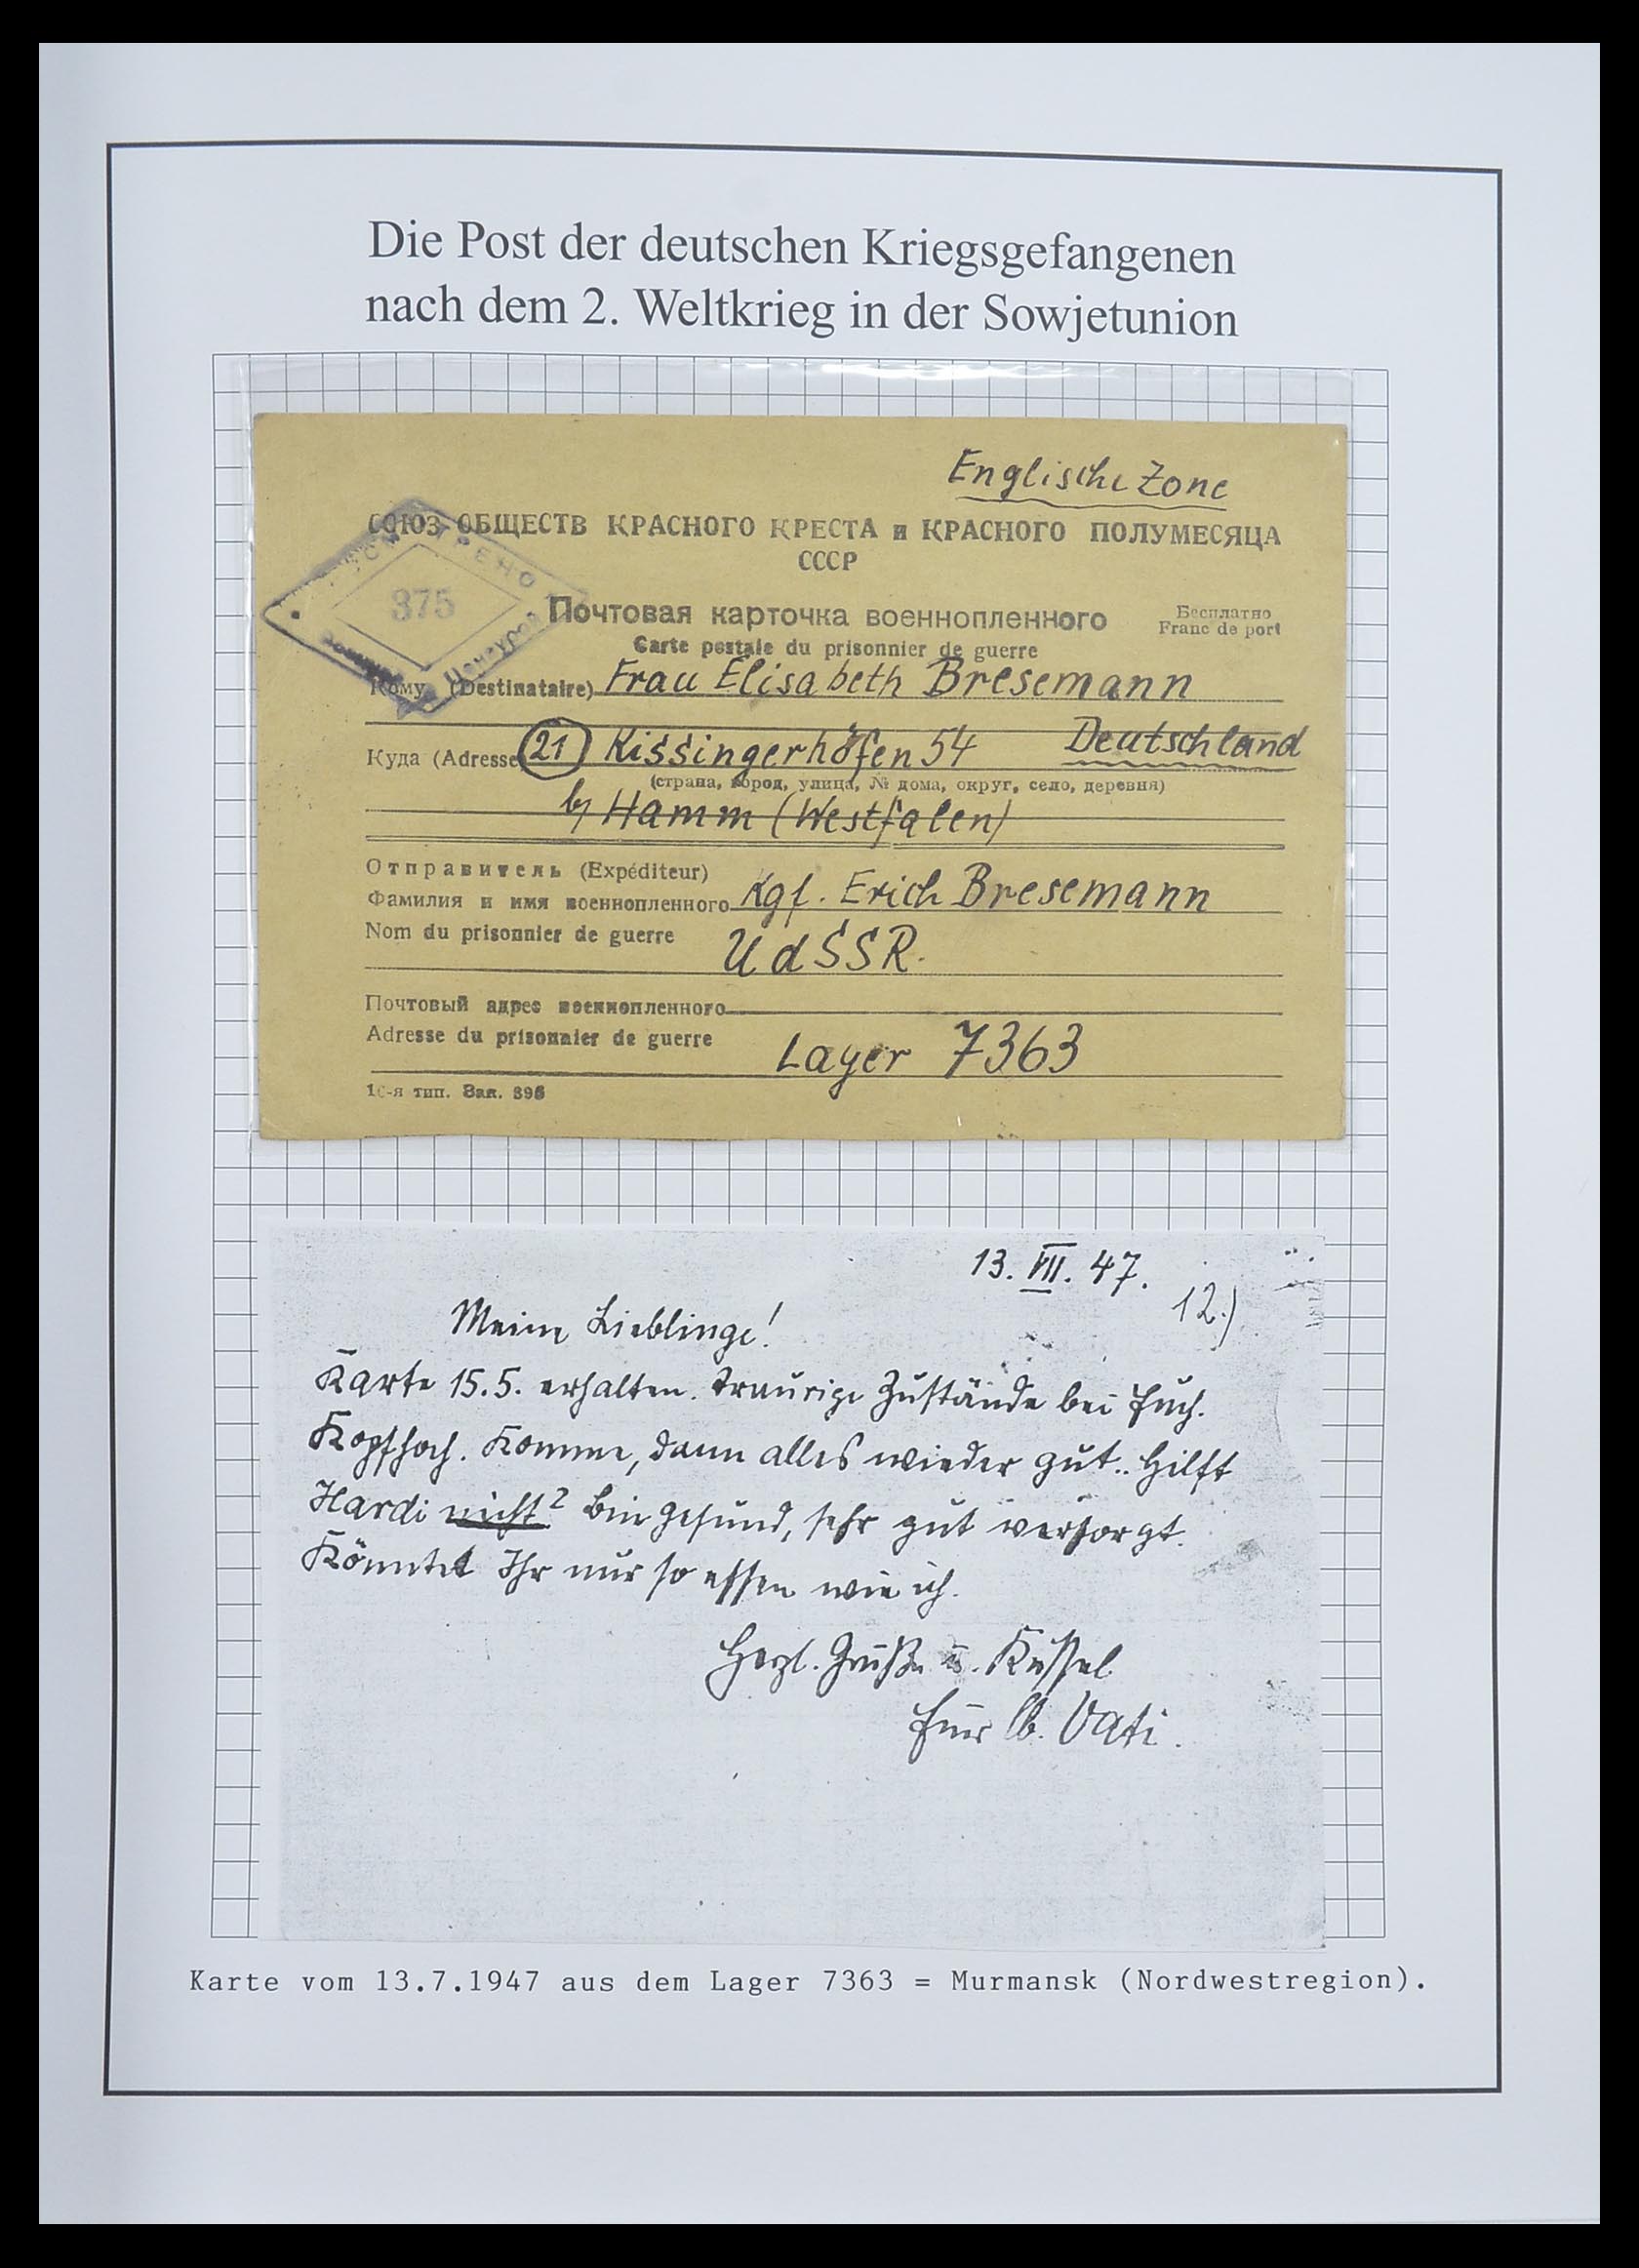 Die Post der deutschen Kriegsgefangenen
nach dem 2. Weltkrieg in der Sowjetunion
Englische Zone
СОЮЗ ОБЩЕСТВ КРАСНОГО КРЕСТА и КРАСНОГО ПОЛУМЕСЯЦА
СССР
375
Почтовая карточка военнопленного
Бесплатно
Franc de port
Carte postale du prisonnier de guerre
Кому (Destinataire) Frau Elisabeth Bresemann
Куда (Adresse) 21 Kissingerhöfen 54 Deutschland
(страна, город, улица, № дома, округ, село, деревня)
b/ Hamm (Westfalen)
Отправитель (Expéditeur)
Фамилия и имя военнопленного Kgf. Erich Bresemann
Nom du prisonnier de guerre
UdSSR.
Почтовый адрес военнопленного
Adresse du prisonnier de guerre
Lager 7363
16-я тип. Зак. 396
13. VII. 47.
12.)
Meine Lieblinge!
Karte 15.5. erhalten. Traurige Zustände bei Euch.
Kopfhoch. Komme, dann alles wieder gut.. Hilft
Hardi nicht? Bin gesund, sehr gut versorgt.
Könntet Ihr nur so essen wie ich.
Herzl. Grüße u. Küssel
Euer lb. Vati.
Karte vom 13.7.1947 aus dem Lager 7363 = Murmansk (Nordwestregion).